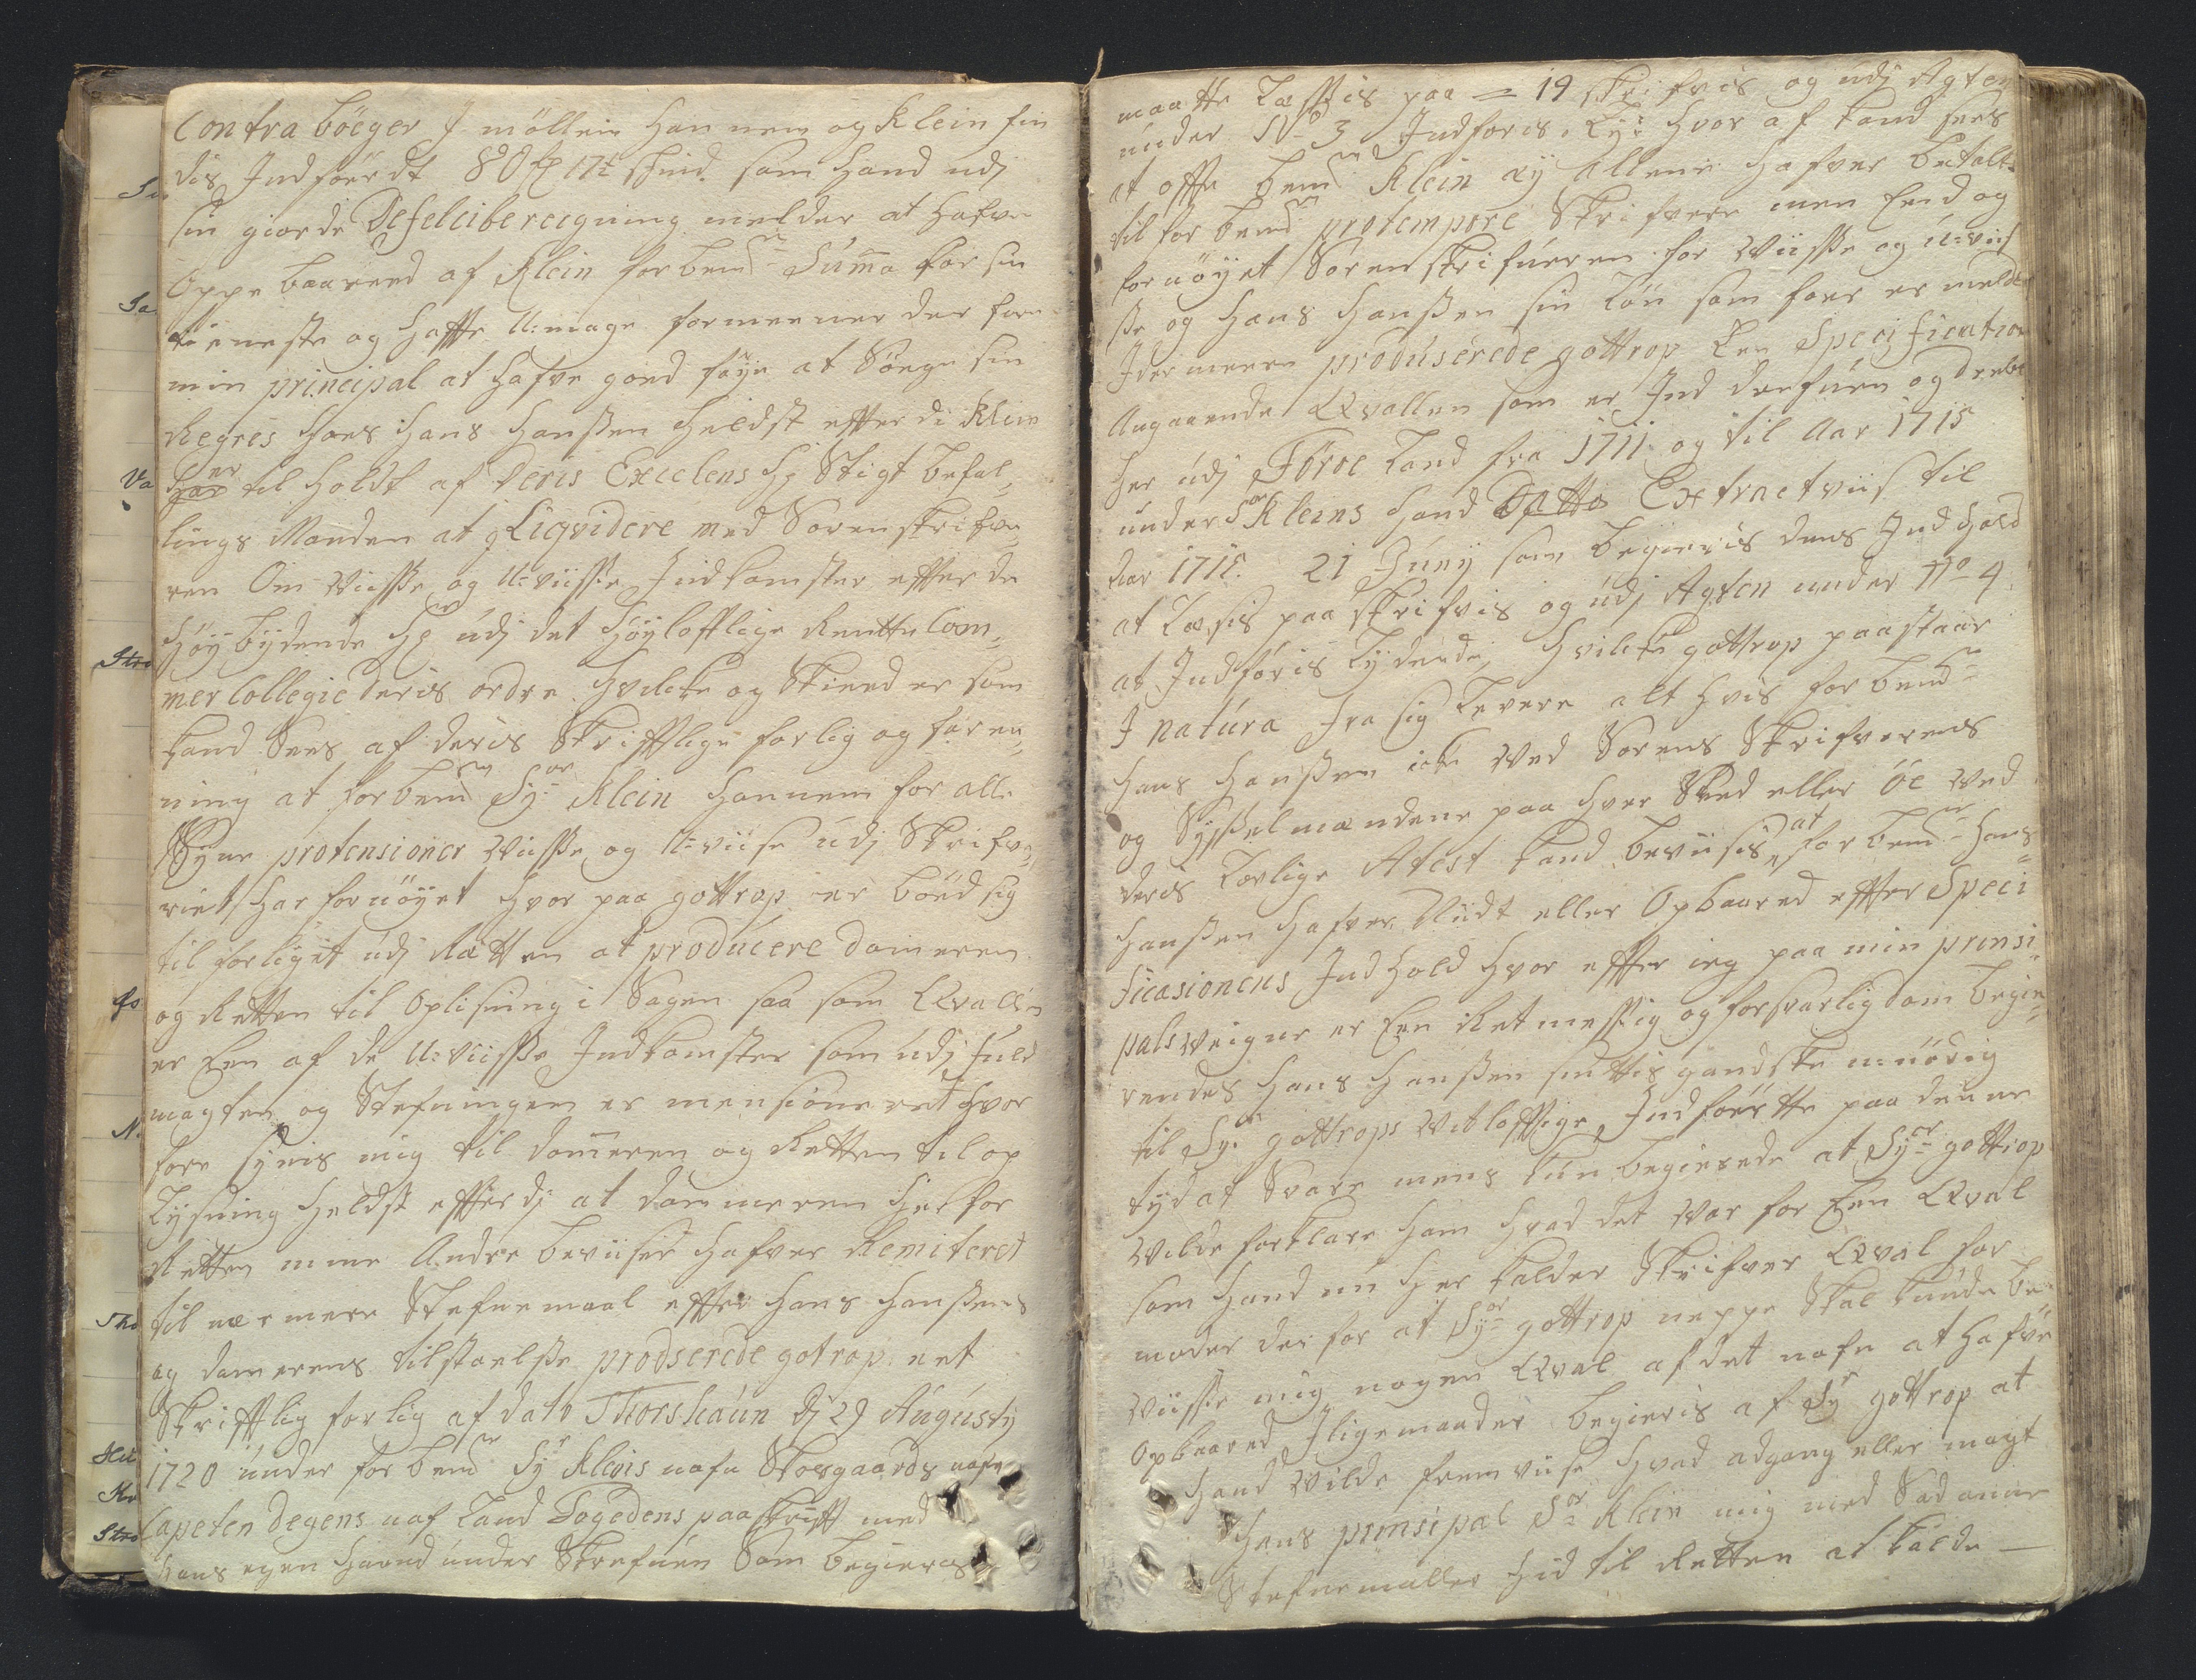 Contra böeger J möllem hannem og Klein fin
dis Jndföerdt 80 17½ skind som hand udj
sin giorde Defeleibe reigning melder at hafve
Oppe baareed af Klein forbemte Summa for sin
tieneste og hafft U:mage formeener der fore
min principal at hafve goed föye at Söege sin
Regres hoes Hans Hanßen heldst effterdi Klein
er til holdt af Deris Excelens H: Stigt befal,,
lings Manden at Liqvidere med Sorenskrifve,,
ren Om Visse og U:viisse Jndkomster effter de
Höÿ bÿdende H: udj det Höÿlofflige Rentte Cam,,
mer Collegie deris ordre hvilcke og Skeed er som
kand Sees af deris Skrifftlige forlig og foree,,
ning at forbemte Sr Klein hannem for alle
Sÿne protensioner Visse og U:viise udj Skrifve,,
riet har fornöÿet hvor paa gottrop er böed sig
til forliget udj Rætten at producere domeren
og Retten til Oplisning i Sagen saa som Qvallen
er Een af de U:viisse Jndkomster som udj fuld
magten og Stefningen er mensioneret hvor
fore sÿnis mig til domeren og Retten til op
Lÿsning heldst effterdj at dommeren her for
Retten mine Andre beviiser hafver Remiteret
til nærmere Stefnemaal effter Hans Hanßens
og domerens tilstaelße prodserede gotrop eet
Skrifftlig forlig af dato Thorshaun dj 29 Augustÿ
1720 under forbemte Sr Kleins nafn Skovgaards nafn
Capeten Degens nafn Land Fogedens paaskrifft med
hans egen haand under Skrefuen Som begieris
maatte Læssis paa 19 skrifvis og udj Agten
under No 3 Jndföris, Lÿ: hvor af kand sees
at offte bemte Klein eÿ Allene hafver betalt
til forbemte protempore Skrifvere men End og
fornöÿet Sorenskrifueren for Viisse og U:viis
ße og Hans Hanßen sin Lön som foer er meldt
Jder meere producerede gottrop Een Specification
Angaaende Qvallen som er Jnd drefuen og dræbt
her udj Föroe Land fra 1711 og til Aar 1715
under Sr Kleins Hand Datto Extractviis til
Aar 1715. 21 Junÿ som begieris dens Jndhold
at Læsis paa skrifvis og udj Agten under No 4
at Jndföris Lÿdende, Hvilcke gottrop paastaar
J natura fra sig Levere alt hvis forbemte
Hans Hanßen icke Ved Sorens Skrifverens
og Sÿsselmændene paa hver Sted eller öe ved
deris Lovlige Atest kand beviisis at forbemte Hans
Hanßen hafver Nÿdt eller Opbaared effter Speci
ficasionens Jndhold hvor effter ieg paa min prinsi,,
pals Veigne er Een Retmessig og forsvarlig dom begie,,
rendes Hans Hanßen sÿnttis gandske unödig
til Sr gottrops Vitlöfftige Jndföerte paa denne
tÿd at Svare mens kun begierede at Sr gottrop
Vilde forklare ham hvad det Var for Een Qval
som hand nu her kalder Skrifver Qval for
moder der for at Sr gottrop neppe Skal kunde be
viisse mig nogen Qval af det nafn at hafve
Opbaared Jligemaader begieris af Sr gottrop at
hand Vilde fremviise hvad adgang eller magt
Hans prinsipal Sr Klein mig med Sadanne
Stefnemaller hid til Retten at kalde —